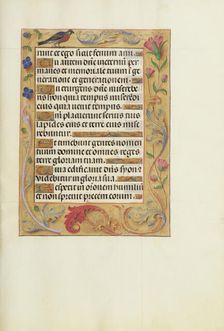 runt et ego sicut fenum arui.
Tu autem domine in eternum per
manes et memoriale tuum i
generationem et generationem.
Tu exurgens domine misereberis
syon quia tempus miserendi
eius quia venit tempus.
Quoniam placuerunt servis tuis
lapides eius et terre eius mise
rebuntur.
Et timebunt gentes nomen
tuum domine et omnes reges
terre gloriam tuam.
Quia edificavit dominus syon
videbitur in gloria sua.
Respexit in orationem humilium
et non sprevit precem eorum.